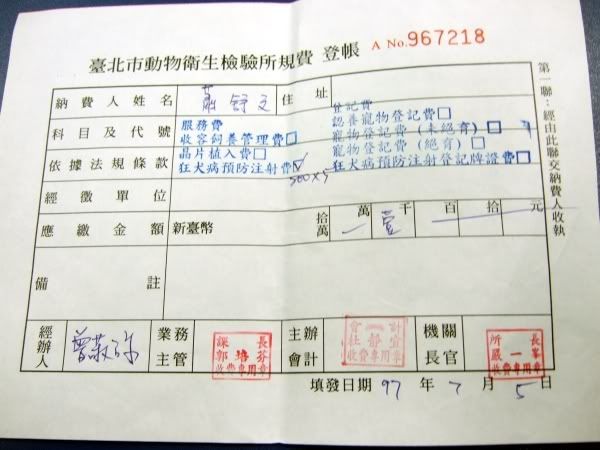 臺北市動物衛生檢驗所規費 登帳 A No.967218
納費人姓名 住址
科目及代號 服務費 登記費
收容飼養管理費□ 認養寵物登記費□
晶片植入費□ 寵物登記費(未絕育)□
依據法規條款 狂犬病預防注射費☑ 寵物登記費(絕育)□
狂犬病預防注射登記牌證費□
500x5
經徵單位
應繳金額 新臺幣 拾萬 萬 壹千 百 拾 元
備註
經辦人 業務主管 課長 郭培芬 收費專用章 主辦會計 會計 杜靜宜 收費專用章 機關長官 所長 嚴一峯 收費專用章
填發日期 97 年 7 月 5 日
第一聯:經由此聯交納費人收執